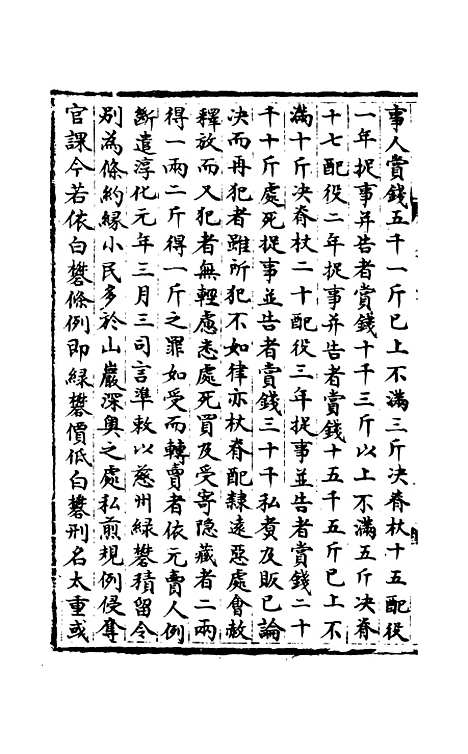 事人賞錢五千一斤已上不滿三斤決脊杖十五配役
一年捉事并告者賞錢十千三斤以上不滿五斤決脊
十七配役二年捉事并告者賞錢十五千五斤已上不
滿十斤決脊杖二十配役三年捉事並告者賞錢二十
千十斤處死捉事並告者賞錢三十千私煑及販已論
決而再犯者雖所犯不如律亦杖脊配隸遠惡處會赦
釋放而又犯者無輕慮悉處死買及受寄隐藏者二兩
得一兩二斤得一斤之罪如受而轉賣者依元賣人例
斷遣淳化元年三月三司言準敕以慈州緑礬積留令
别為條約緣小民多於山巖深奥之處私煎規例侵奪
官課今若依白礬條例即緑礬價低白礬刑名太重或